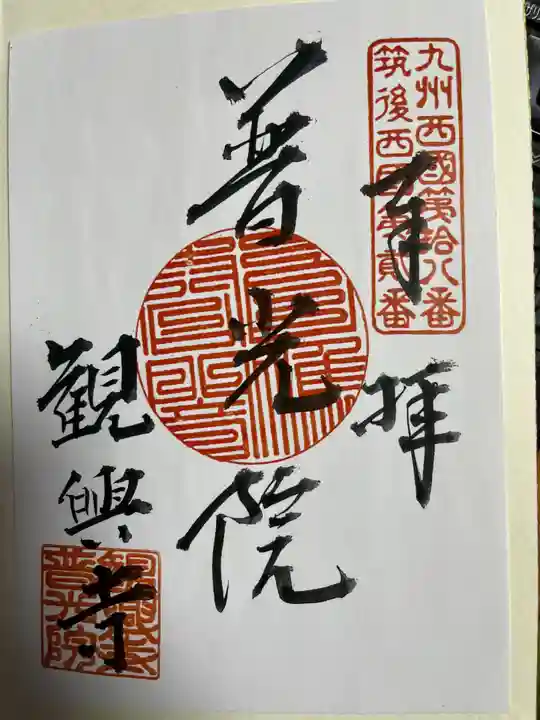 九州西國第拾八番
筑後西國第貳番
奉拝
普光院
観興寺